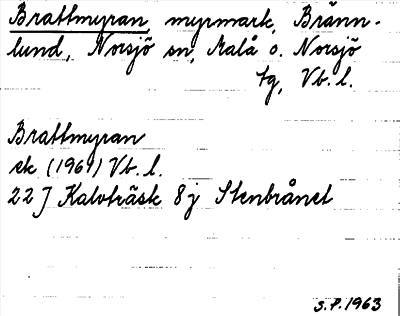 Brattmyran, myrmark, Bränn-
lund, Norsjö sn, Malå o. Norsjö
tg, Vb. l.
Brattmyran
ek (1961) Vb. l.
22 J Kalvträsk 8 j Stenbrånet
S.P. 1963